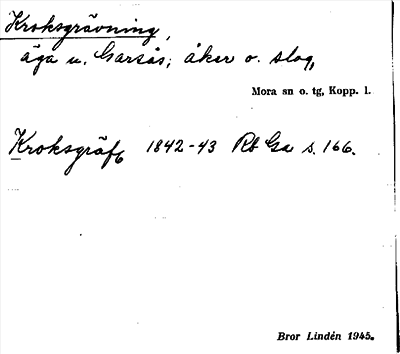 Kroksgrävning,
äga u. Garsås; åker o. slog,
Mora sn o. tg, Kopp. l.
Kroksgräf 1842-43 Rb Ga s. 166.
Bror Lindén 1945.